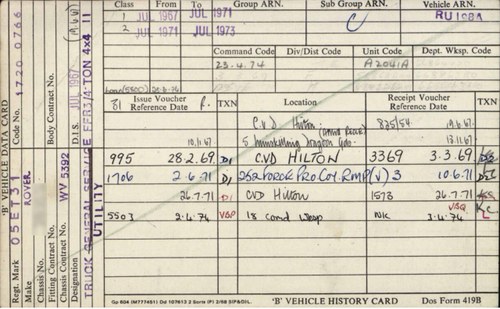 'B' VEHICLE DATA CARD
Code No. 1720 0766
Regt. Mark 05ET31
Make ROVER
Body Contract No. (M&W)
D.I.S. JUL 1967
Chassis No.
Fitting Contract No.
Chassis Contract No. WV 5392
Designation TRUCK GENERAL SERVICE FFR 3/4 TON 4x4 II
UTILITY
Class From To Group ARN. Sub Group ARN. Vehicle ARN.
1 JUL 1967 JUL 1971 C RU108A
2 JUL 1971 JUL 1973
Command Code Div/Dist Code Unit Code Dept. Wksp. Code
23.4.74 A2041A
81 Issue Voucher Reference Date R. TXN Location Receipt Voucher Reference Date TXN
C.V.D Hilton 825/54 19.6.67
10.11.67 5 Dragoon Gds. 17.11.67
995 28.2.69 DI C.VD HILTON 3369 3.3.69
1706 2.6.71 DI Pro Coy. RMP (V) 3 10.6.71
26.7.71 DI CVD Hilton 1573 26.7.71
5503 2.4.74 VSP 18 Comd Wksp NK 3.4.74
'B' VEHICLE HISTORY CARD Dos Form 419B